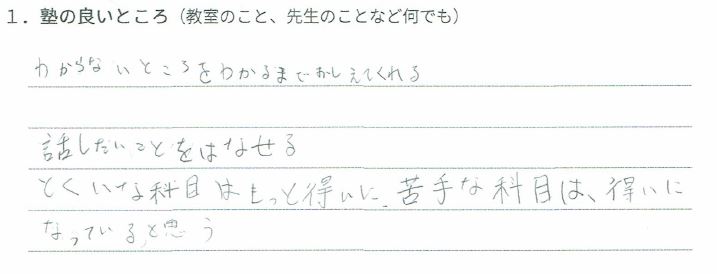 1．塾の良いところ（教室のこと、先生のことなど何でも）
わからないところをわかるまでおしえてくれる
話したいことをはなせる
とくいな科目はもっと得いに、苦手な科目は、得いに
なっていると思う